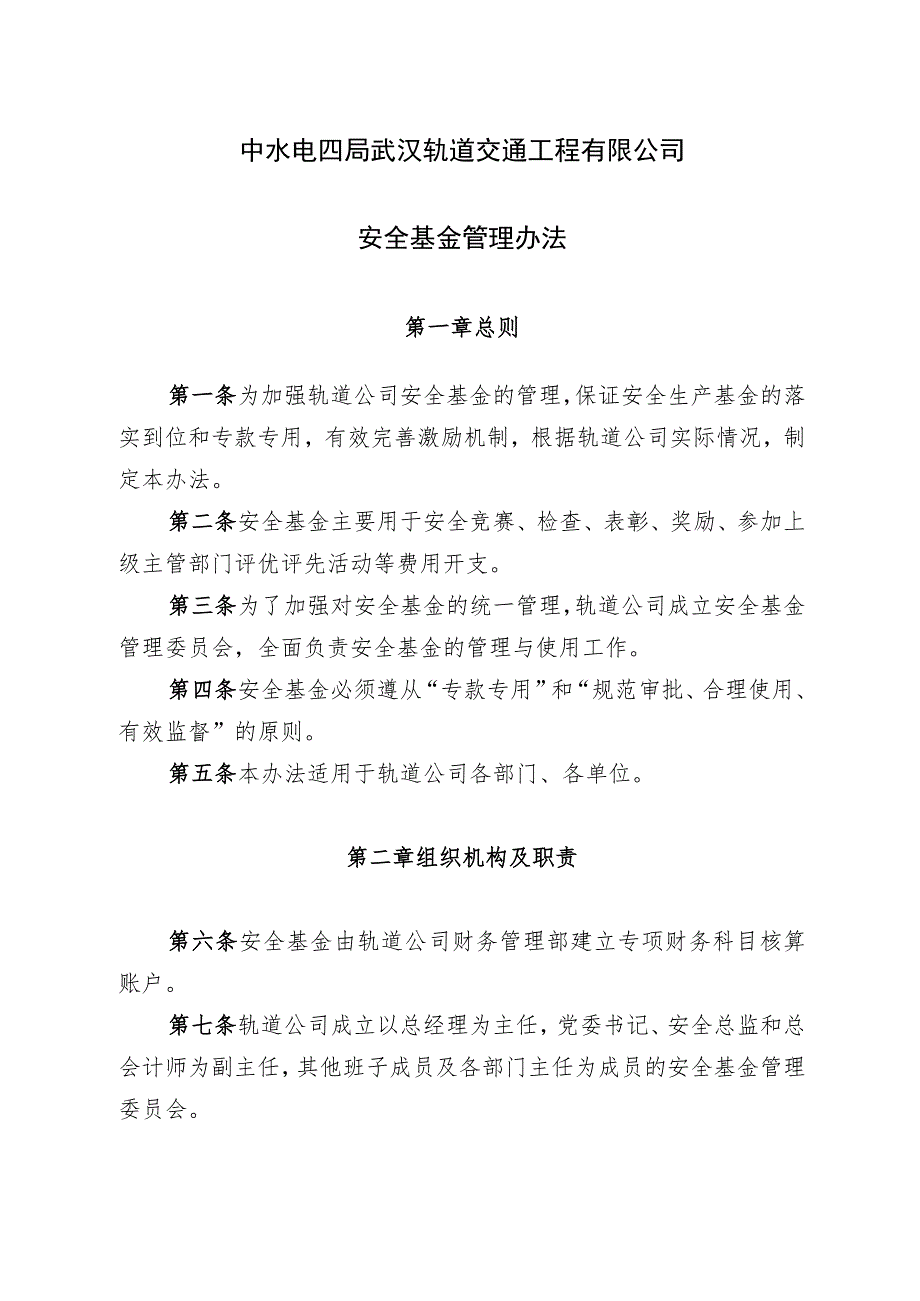 中水电四局武汉轨道交通工程有限公司
安全基金管理办法
第一章总则
第一条为加强轨道公司安全基金的管理，保证安全生产基金的落
实到位和专款专用，有效完善激励机制，根据轨道公司实际情况，制
定本办法。
第二条安全基金主要用于安全竞赛、检查、表彰、奖励、参加上
级主管部门评优评先活动等费用开支。
第三条为了加强对安全基金的统一管理，轨道公司成立安全基金
管理委员会，全面负责安全基金的管理与使用工作。
第四条安全基金必须遵从“专款专用”和“规范审批、合理使用、
有效监督”的原则。
第五条本办法适用于轨道公司各部门、各单位。
第二章组织机构及职责
第六条安全基金由轨道公司财务管理部建立专项财务科目核算
账户。
第七条轨道公司成立以总经理为主任，党委书记、安全总监和总
会计师为副主任，其他班子成员及各部门主任为成员的安全基金管理
委员会。